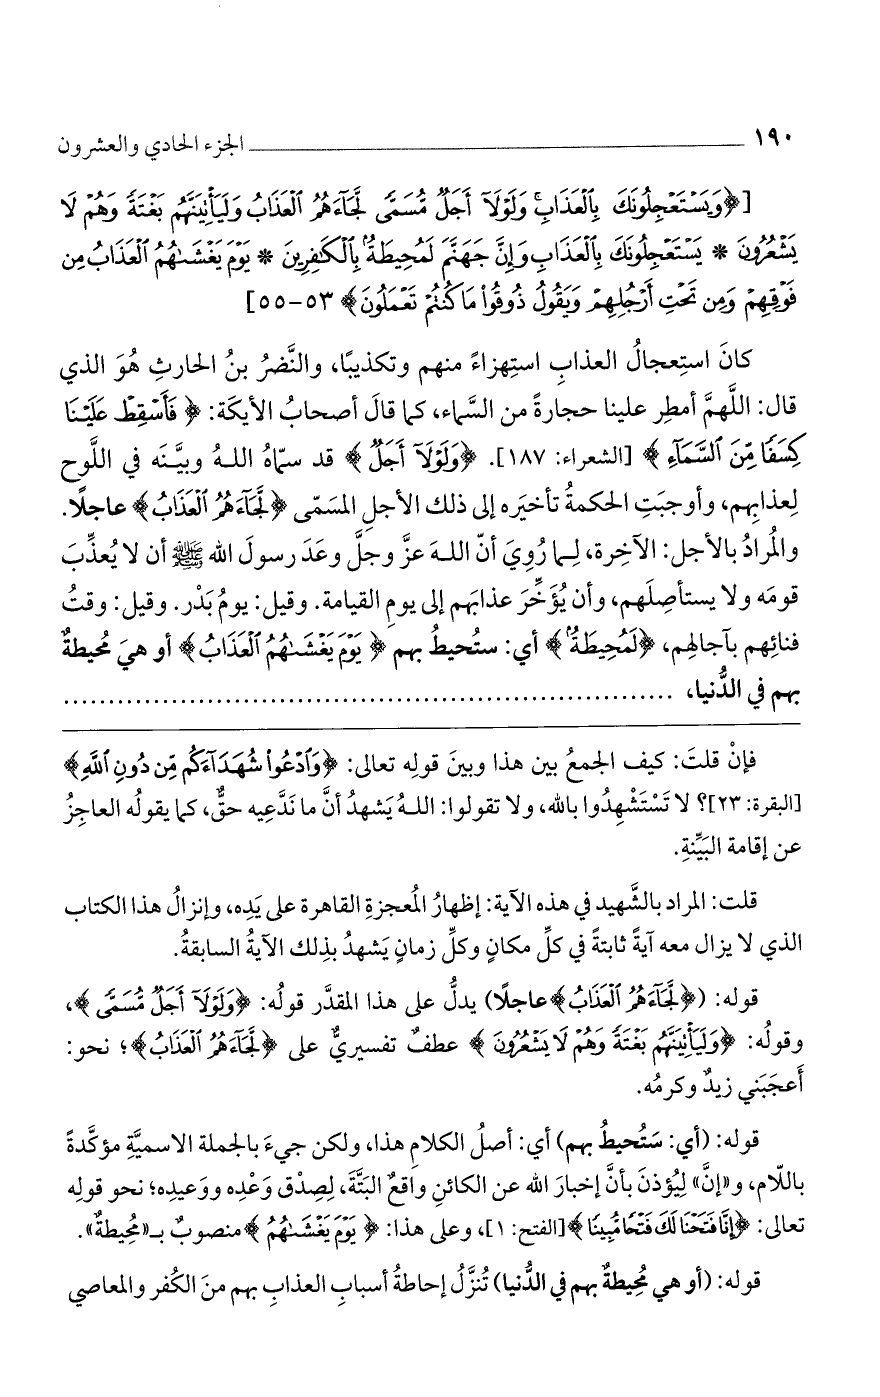 ١٩٠ ــــــــــــــــــــــــــــــــــــــــ الجزء الحادي والعشرون
[﴿وَيَسْتَعْجِلُونَكَ بِالْعَذَابِ ۚ وَلَوْلَآ أَجَلٌ مُّسَمًّى لَّجَآءَهُمُ الْعَذَابُ وَلَيَأْتِيَنَّهُم بَغْتَةً وَهُمْ لَا
يَشْعُرُونَ * يَسْتَعْجِلُونَكَ بِالْعَذَابِ وَإِنَّ جَهَنَّمَ لَمُحِيطَةٌۢ بِالْكَٰفِرِينَ * يَوْمَ يَغْشَىٰهُمُ الْعَذَابُ مِن
فَوْقِهِمْ وَمِن تَحْتِ أَرْجُلِهِمْ وَيَقُولُ ذُوقُوا۟ مَا كُنتُمْ تَعْمَلُونَ﴾ ٥٣-٥٥]
كانَ استِعجالُ العذابِ استِهزاءً منهم وتكذيبًا، والنَّضرُ بنُ الحارثِ هُوَ الذي
قال: اللَّهمَّ أمطِر علينا حجارةً من السَّماء، كما قالَ أصحابُ الأيكَة: ﴿ فَأَسْقِطْ عَلَيْنَا
كِسَفًا مِّنَ السَّمَآءِ ﴾ [الشعراء: ١٨٧]. ﴿وَلَوْلَآ أَجَلٌ ﴾ قد سمّاهُ اللـهُ وبيَّنَه في اللَّوح
لِعذابِهم، وأوجبَتِ الحكمةُ تأخيَره إلى ذلك الأجلِ المسَمّى ﴿لَّجَآءَهُمُ الْعَذَابُ﴾ عاجلًا.
والمُرادُ بالأجل: الآخِرة، لِـما رُوِيَ أنّ اللـهَ عزَّ وجلَّ وعَدَ رسولَ الله ﷺ أن لا يُعذِّبَ
قومَه ولا يستأصِلَهم، وأن يُؤَخِّرَ عذابَهم إلى يومِ القيامة. وقيل: يومُ بَدْر. وقيل: وقتُ
فنائِهم بآجالِهِم، ﴿لَمُحِيطَةٌۢ ﴾ أي: ستُحيطُ بهم ﴿ يَوْمَ يَغْشَىٰهُمُ الْعَذَابُ ﴾ أو هيَ مُحيطةٌ
بهم في الدُّنيا، ......................................................................
فإنْ قلتَ: كيف الجمعُ بين هذا وبينَ قولِه تعالى: ﴿وَادْعُوا۟ شُهَدَآءَكُم مِّن دُونِ اللَّهِ﴾
[البقرة: ٢٣]؟ لا تَسْتَشْهِدُوا بالله، ولا تقولوا: اللـهُ يَشهدُ أنَّ ما نَدَّعيه حقٌّ، كما يقولُه العاجِزُ
عن إقامة البَيِّنةِ.
قلت: المراد بالشَّهيد في هذه الآية: إظهارُ المُعجزةِ القاهرة على يَدِه، وإنزالُ هذا الكتاب
الذي لا يزال معه آيةً ثابتةً في كلِّ مكانٍ وكلِّ زمانٍ يَشهدُ بذِلك الآيةُ السابقةُ.
قوله: (﴿لَّجَآءَهُمُ الْعَذَابُ﴾ عاجلًا) يدلُّ على هذا المقدَّر قولُه: ﴿وَلَوْلَآ أَجَلٌ مُّسَمًّى ﴾،
وقولُه: ﴿وَلَيَأْتِيَنَّهُم بَغْتَةً وَهُمْ لَا يَشْعُرُونَ ﴾ عطفٌ تفسيريٌّ على ﴿لَّجَآءَهُمُ الْعَذَابُ﴾؛ نحو:
أَعجَبَني زيدٌ وكرمُه.
قوله: (أي: سَتُحيطُ بهم) أي: أصلُ الكلامِ هذا، ولكن جيءَ بالجملة الاسميَّةِ مؤكَّدةً
باللّام، و«إنَّ» لِيُؤذنَ بأنَّ إخبارَ الله عن الكائنِ واقعٌ البَتَّةَ، لِصِدْق وَعْدِه ووَعيدِه؛ نحو قولِه
تعالى: ﴿إِنَّا فَتَحْنَا لَكَ فَتْحًا مُّبِينًا ﴾ [الفتح: ١]، وعلى هذا: ﴿ يَوْمَ يَغْشَىٰهُمُ ﴾ منصوبٌ بـ«مُحِيطةٌ».
قوله: (أو هي مُحِيطةٌ بهم في الدُّنيا) تُنزَّلُ إحاطةُ أسبابِ العذابِ بهم منَ الكُفر والمعاصي